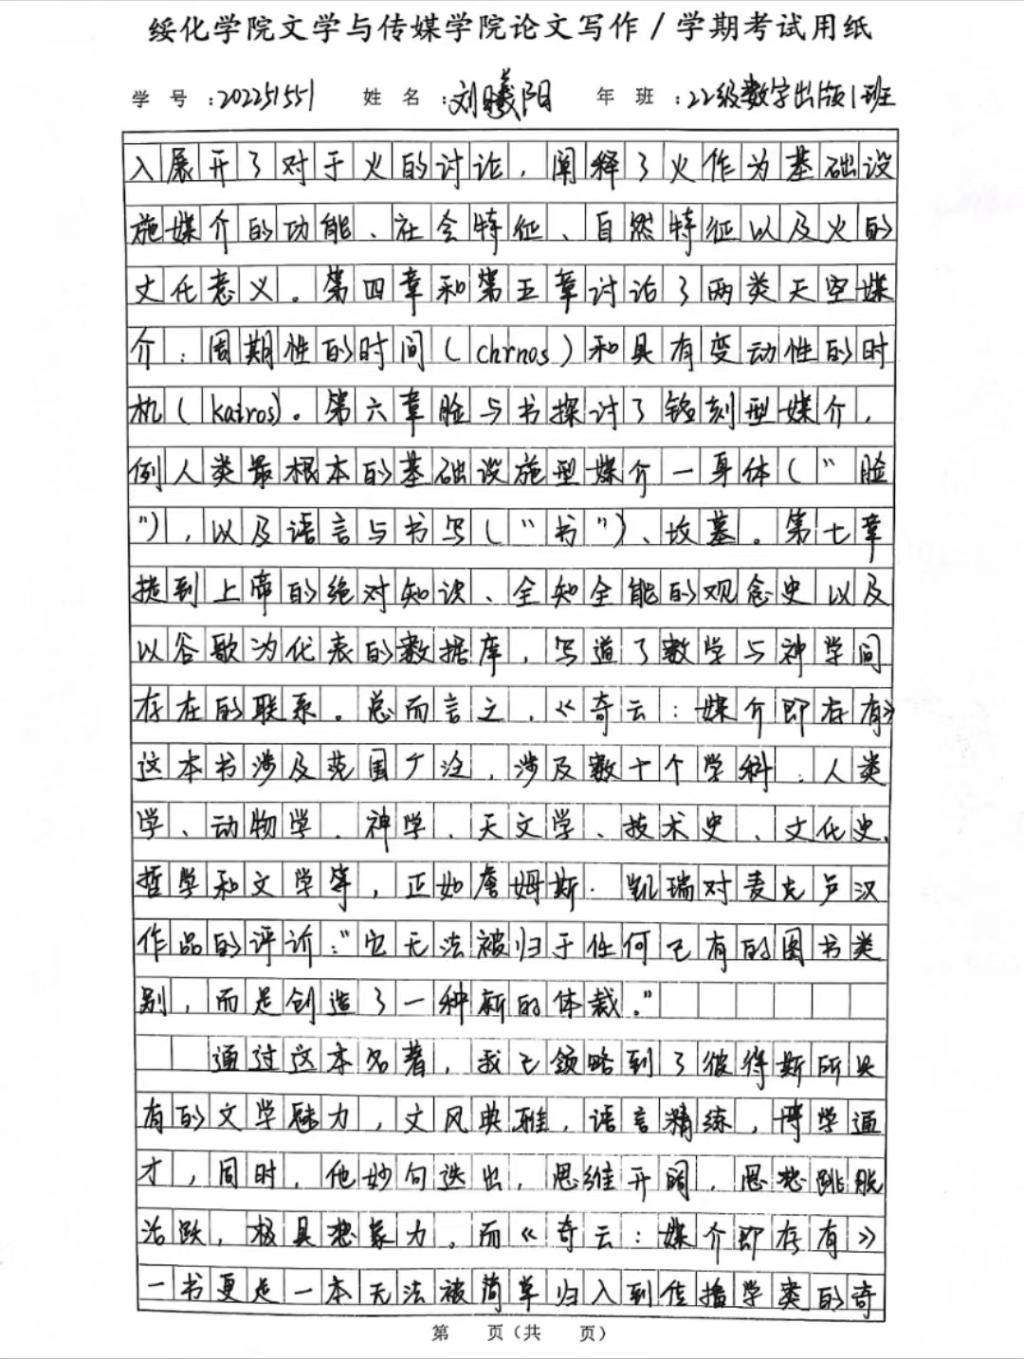 绥化学院文学与传媒学院论文写作/学期考试用纸
学 号：202251551 姓 名：刘曦阳 年 班：22级数字出版1班
入展开了对于火的讨论，阐释了火作为基础设
施媒介的功能、社会特征、自然特征以及火的
文化意义。第四章和第五章讨论了两类天空媒
介：周期性的时间(chrnos)和具有变动性的时
机(kairos)。第六章脸与书探讨了铭刻型媒介，
例人类最根本的基础设施型媒介一身体("脸
")，以及语言与书写("书")、坟墓。第七章
提到上帝的绝对知识、全知全能的观念史以及
以谷歌为代表的数据库，写道了数学与神学间
存在的联系。总而言之，《奇云：媒介即存有》
这本书涉及范围广泛，涉及数十个学科：人类
学、动物学、神学、天文学、技术史、文化史、
哲学和文学等，正如詹姆斯·凯瑞对麦克卢汉
作品的评价："它无法被归于任何已有的图书类
别，而是创造了一种新的体裁。"
通过这本名著，我已领略到了彼得斯所具
有的文学魅力，文风典雅，语言精练，博学通
才，同时，他妙句迭出，思维开阔，思想跳脱
活跃，极具想象力。而《奇云：媒介即存有》
一书更是一本无法被简单归入到传播学类的奇
第 页(共 页)